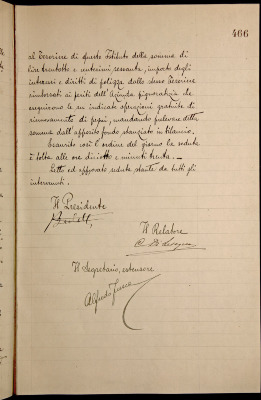 466
al Tesoriere di questo Istituto della somma di
lire trentotto e centesimi sessanta, importo degli
interessi e diritti di polizza dallo stesso Tesoriere
rimborsati ai periti dell'Azienda pignoratizia che
eseguirono le su indicate operazioni gratuite di
rinnovamento di pegni, mandando prelevare detta
somma dall'apposito fondo stanziato in bilancio.
Esaurito così l'ordine del giorno la seduta
è tolta alle ore diciotto e minuti trenta.
Letto ed approvato seduta stante da tutti gli
intervenuti.
Il Presidente
Il Relatore
Il Segretario, estensore
Alfredo